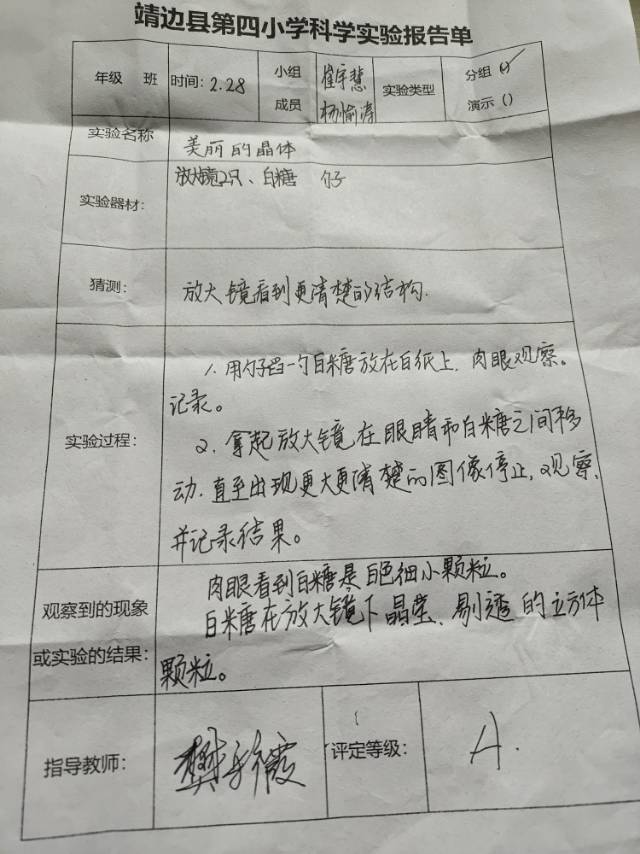 靖边县第四小学科学实验报告单
年级 班 时间：2.28 小组成员 崔宇慧 杨愉涛 实验类型 分组（✓） 演示（）
实验名称 美丽的晶体
实验器材： 放大镜2只、白糖 勺子
猜测： 放大镜看到更清楚的结构.
实验过程： 1. 用勺子舀一勺白糖放在白纸上，肉眼观察。
记录。
2. 拿起放大镜在眼睛和白糖之间移
动.直至出现更大更清楚的图像停止，观察，
并记录结果。
观察到的现象
或实验的结果：
肉眼看到白糖是白色细小颗粒。
白糖在放大镜下晶莹、剔透的立方体
颗粒。
指导教师： 樊 霞 评定等级： A.